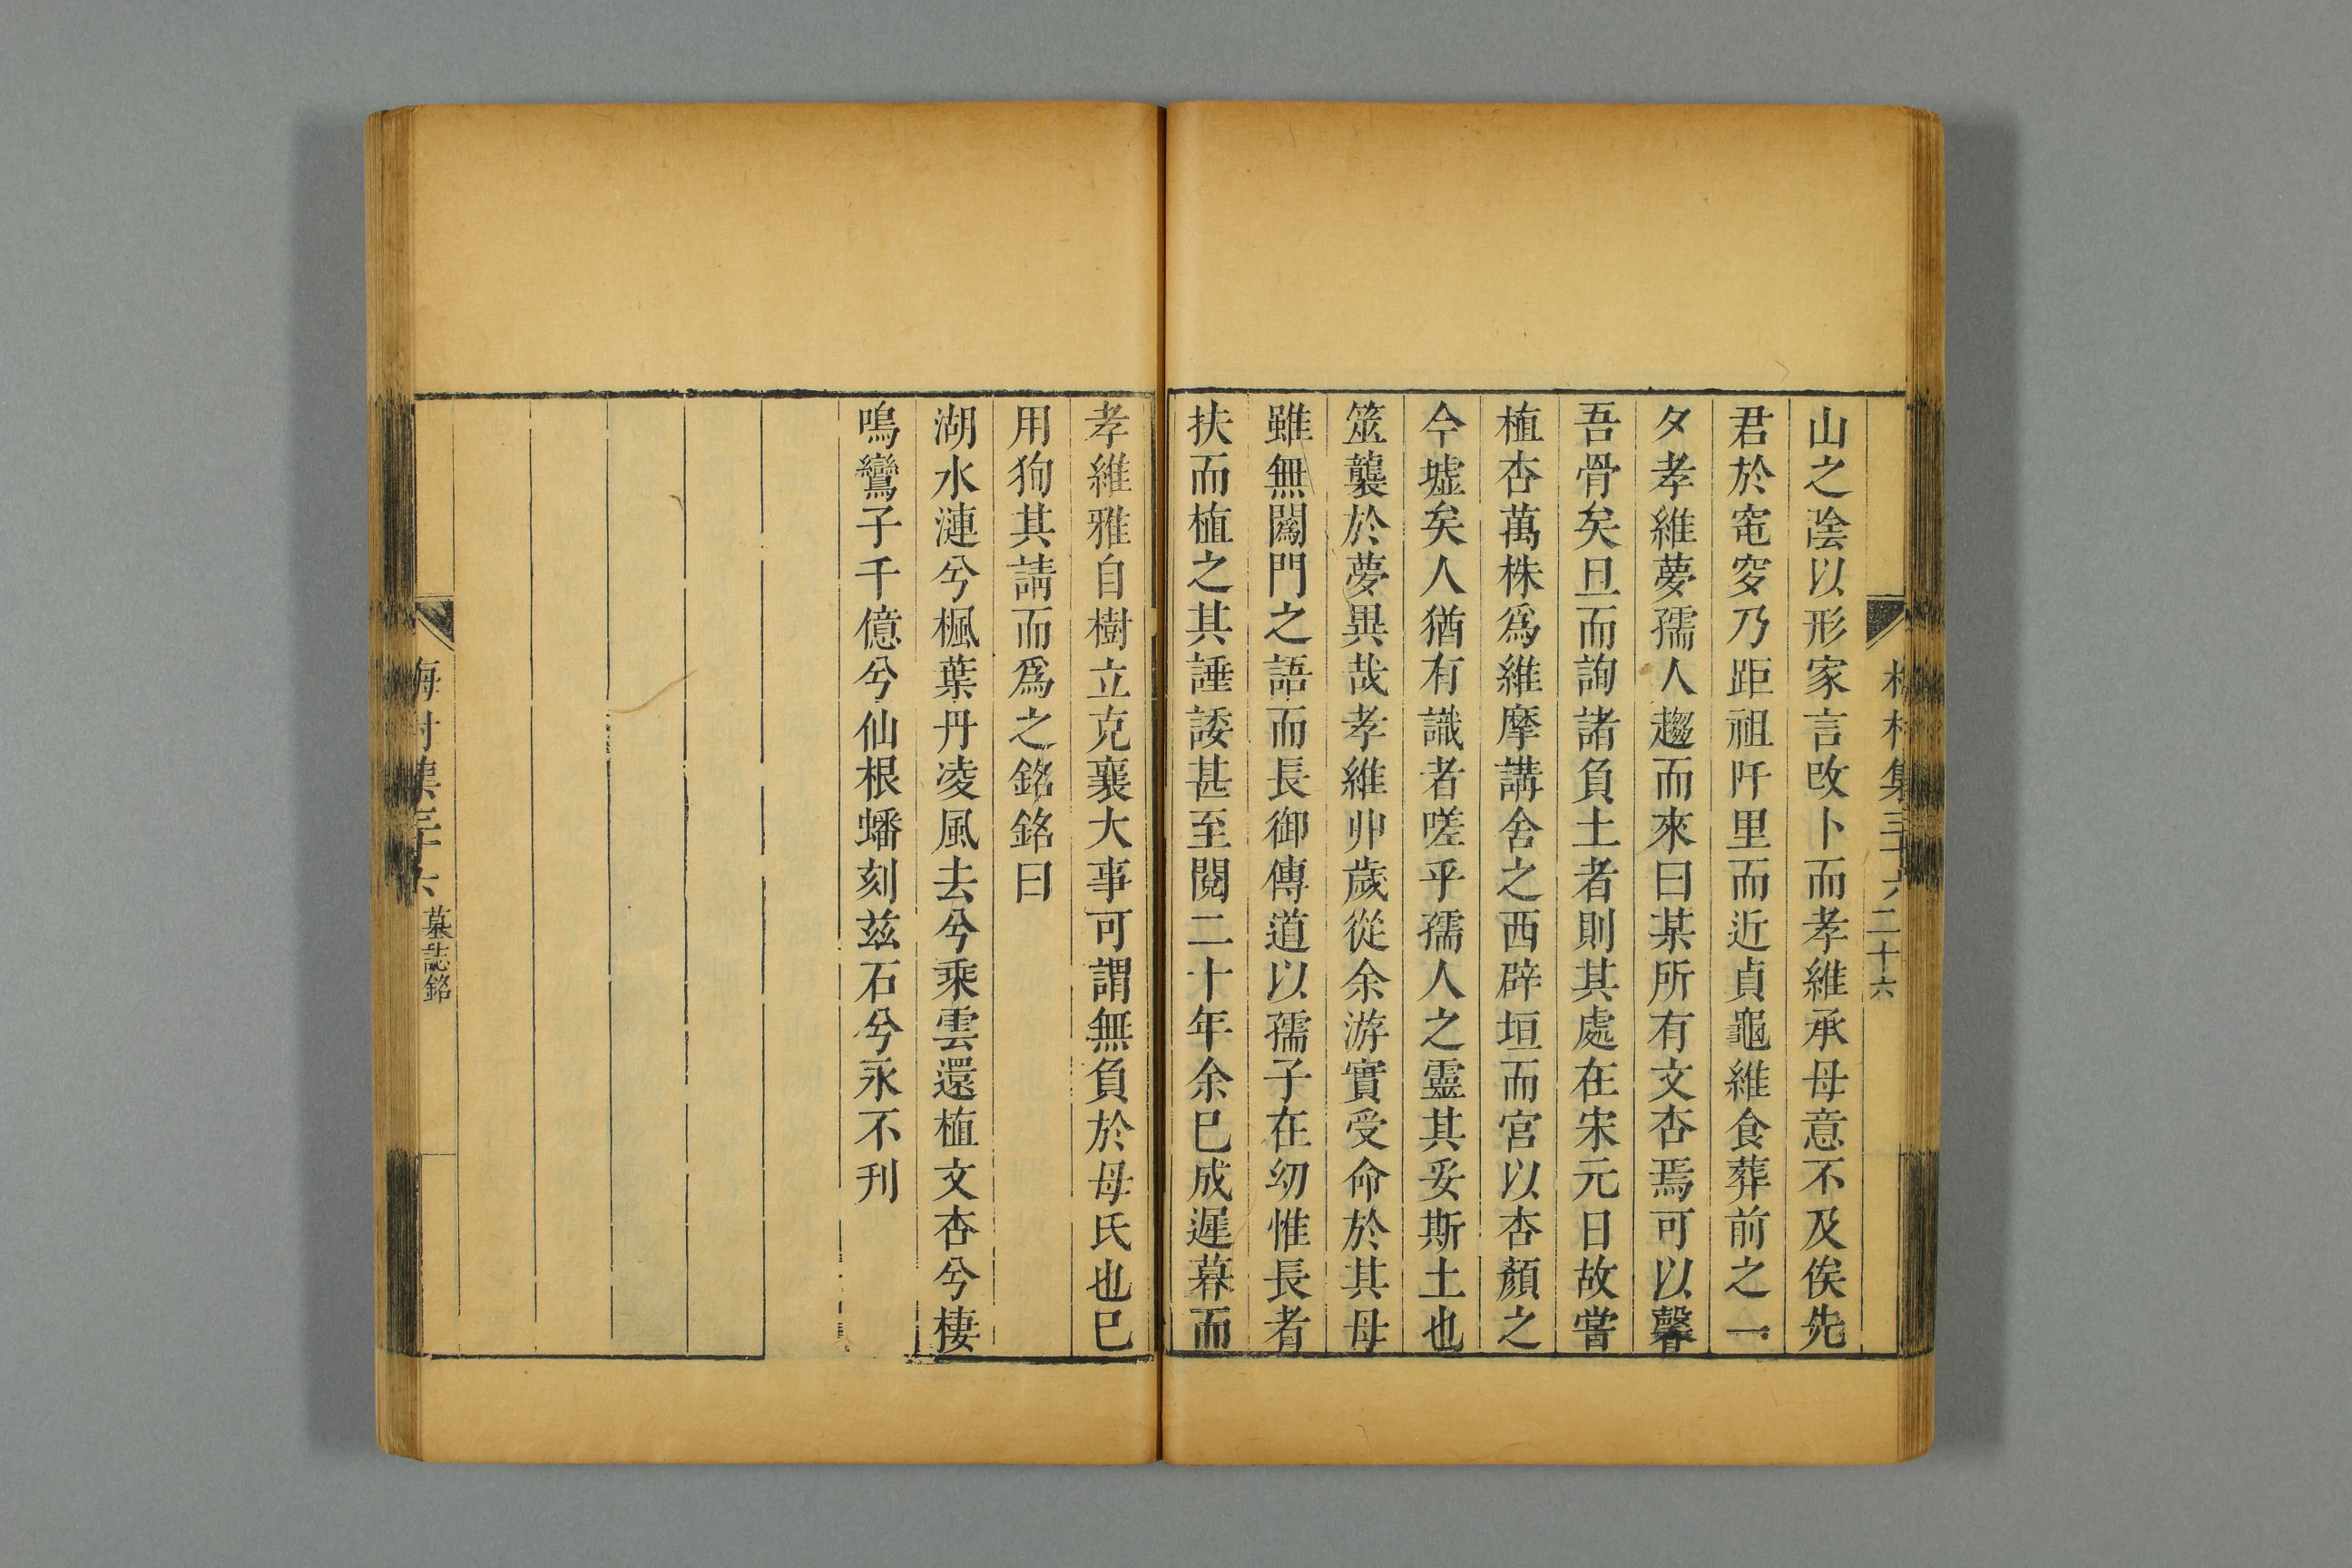 梅村集三十六 二十六
山之陰以形家言改卜而孝維承母意不及俟先
君於窀穸乃距祖阡里而近貞龜維食葬前之一
夕孝維夢孺人趨而來曰某所有文杏焉可以馨
吾骨矣旦而詢諸負土者則其處在宋元日故嘗
植杏萬株爲維摩講舍之西辟垣而宮以杏顏之
今墟矣人猶有識者嗟乎孺人之靈其妥斯土也
筮襲於夢異哉孝維丱歲從余游實受命於其母
雖無闖門之語而長御傳道以孺子在幼惟長者
扶而植之其諈諉甚至閱二十年余已成遲暮而
孝維雅自樹立克襄大事可謂無負於母氏也已
用狥其請而爲之銘銘曰
湖水漣兮楓葉丹凌風去兮乘雲還植文杏兮棲
鳴鸞子千億兮仙根蟠刻茲石兮永不刊
梅村集三十六 墓誌銘